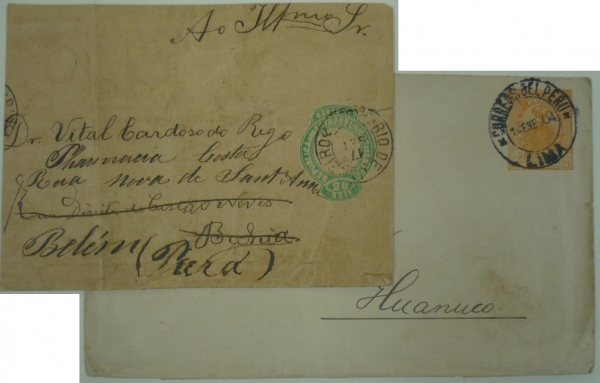 Ao Illmo Sr.
Dr. Vital Cardoso do Rego
Pharmacia Costa
Rua nova de Sant'Anna
Rua Direita do Castro Neves
Bahia
Belém (Pará)
20
RIO DE
CORREOS DEL PERU
LIMA
Huanuco.